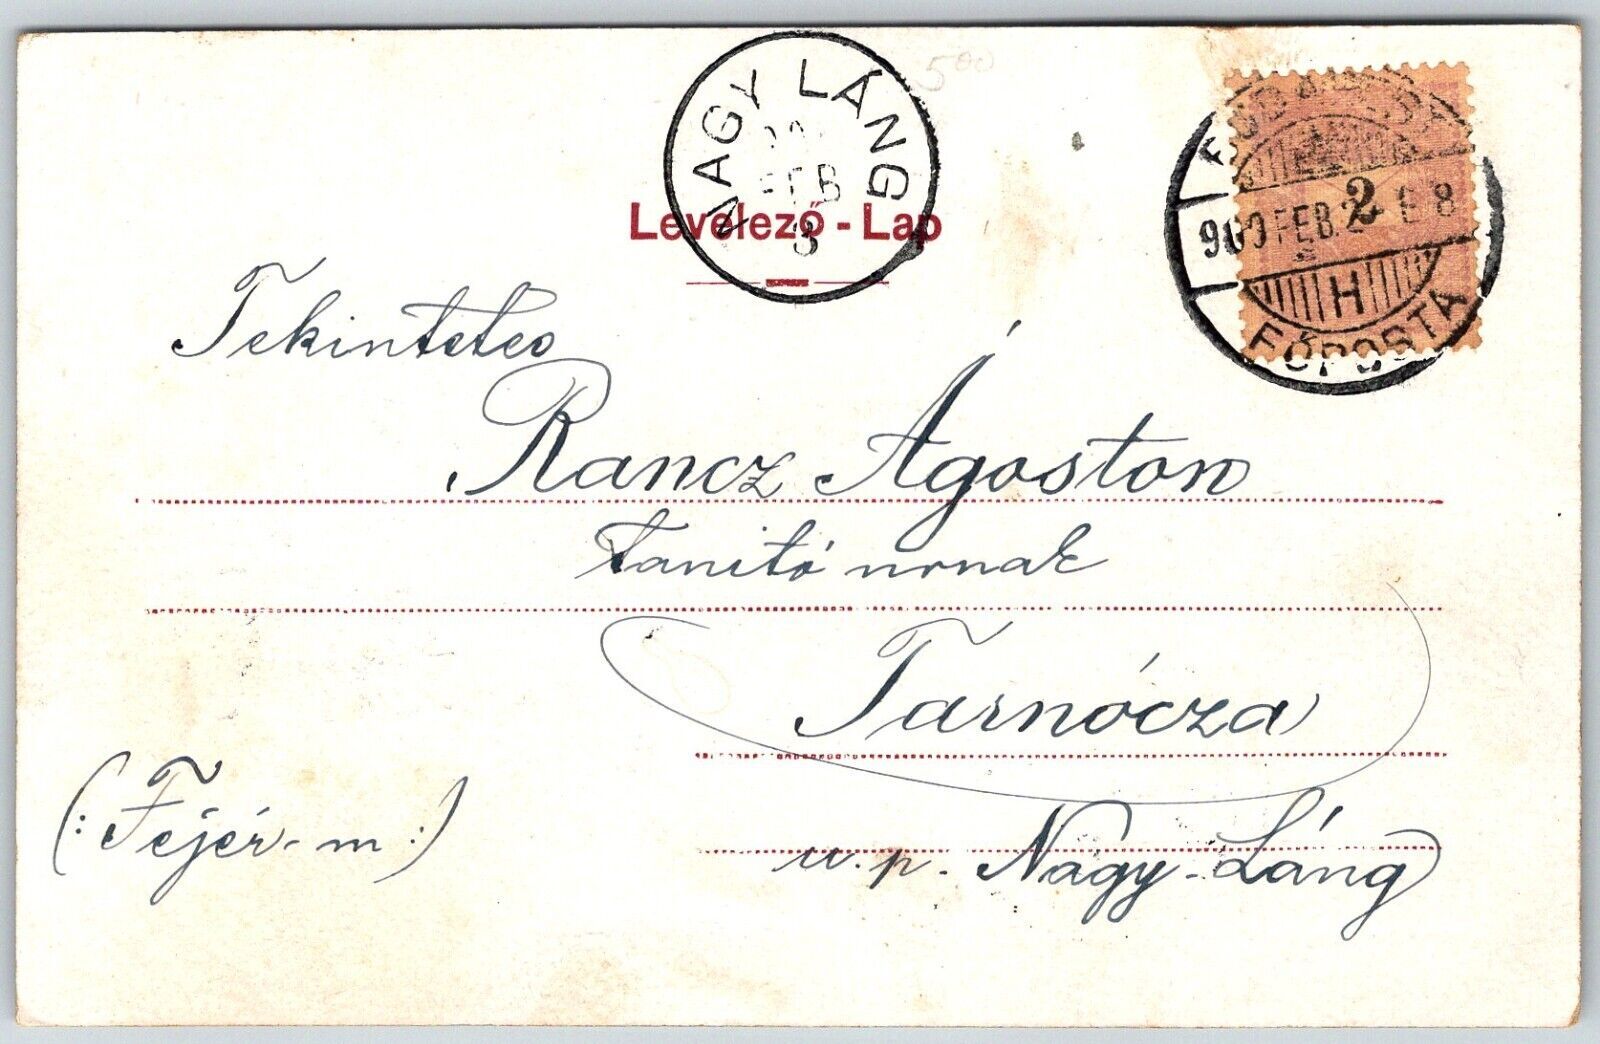 NAGY LÁNG
FEB
3
500
Levelező-Lap
900 FEB. 2 E 8
2
H
FŐPOSTA
Tekintetes
Rancz Ágoston
tanitó urnak
Tarnócza
(: Fejér-m :)
u.p. Nagy-Láng